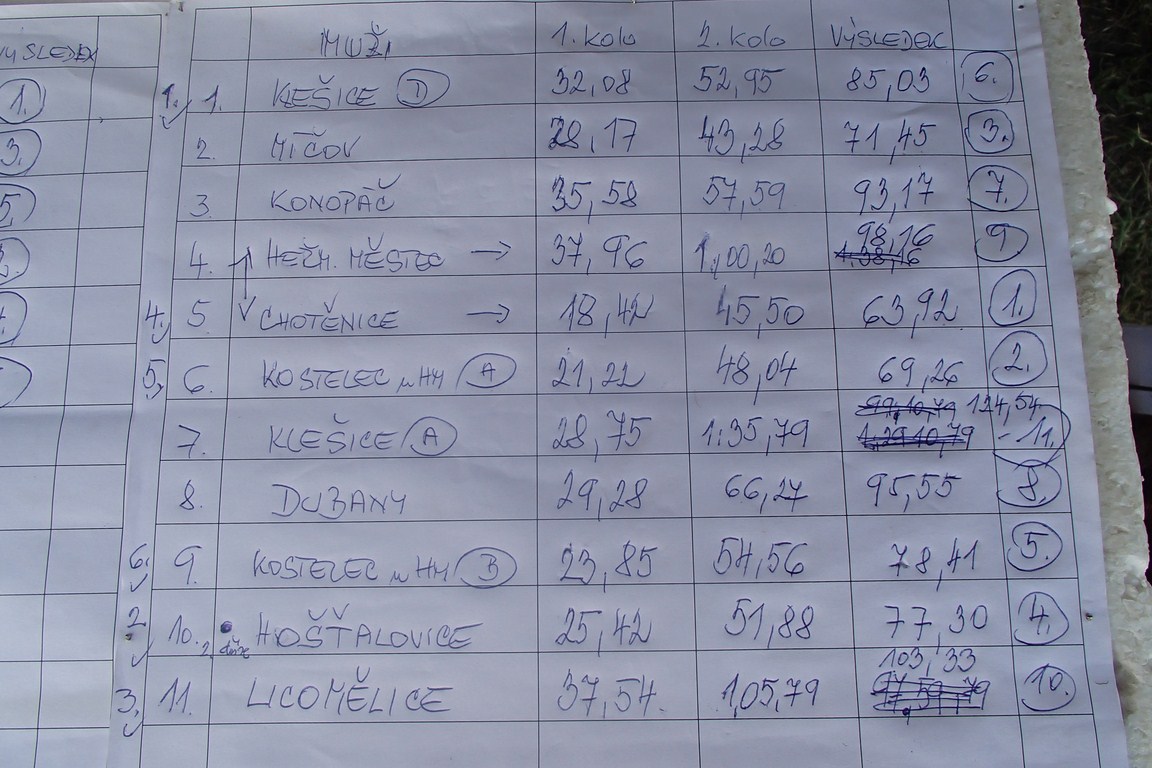 VÝSLEDEK
1.
3.
5.
MUŽI 1. KOLO 2. KOLO VÝSLEDEK
1. 1. KLEŠICE D 32,08 52,95 85,03 6.
2. MÍČOV 28,17 43,28 71,45 3.
3. KONOPÁČ 35,58 57,59 93,17 7.
4. HEŘM. MĚSTEC → 37,96 1,00,20 98,16 9
4. 5. CHOTĚNICE → 18,42 45,50 63,92 1.
5, 6. KOSTELEC u HM A 21,21 48,04 69,26 2.
7. KLEŠICE A 28,75 1:35,79 124,54 - 11.
8. DUBANY 29,28 66,27 95,55 8.
6. 9. KOSTELEC u HM B 23,85 54,56 78,41 5.
2 10. HOŠŤALOVICE 25,42 51,88 77,30 4.
3, 11. LICOMĚLICE 37,54. 1,05,79 103,33 10.